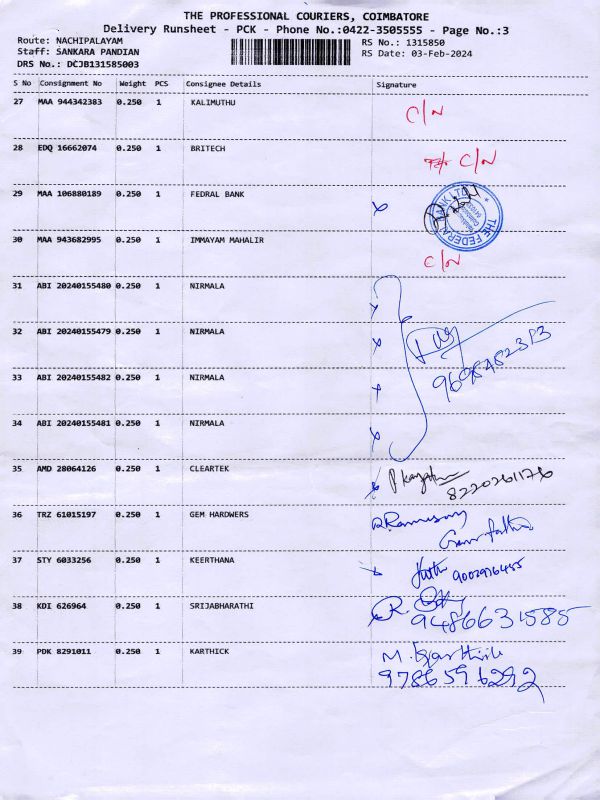 THE PROFESSIONAL COURIERS, COIMBATORE
Delivery Runsheet - PCK - Phone No.:0422-3505555 - Page No.:3
Route: NACHIPALAYAM
Staff: SANKARA PANDIAN
DRS No.: DCJB131585003
RS No.: 1315850
RS Date: 03-Feb-2024
S No Consignment No Weight PCS Consignee Details Signature
27 MAA 944342383 0.250 1 KALIMUTHU C/N
28 EDQ 16662074 0.250 1 BRITECH C/N
29 MAA 106880189 0.250 1 FEDRAL BANK
THE FEDERAL BANK LTD
30 MAA 943682995 0.250 1 IMMAYAM MAHALIR C/N
31 ABI 20240155480 0.250 1 NIRMALA
32 ABI 20240155479 0.250 1 NIRMALA
33 ABI 20240155482 0.250 1 NIRMALA
34 ABI 20240155481 0.250 1 NIRMALA
35 AMD 28064126 0.250 1 CLEARTEK
8220261176
36 TRZ 61015197 0.250 1 GEM HARDWERS
37 STY 6033256 0.250 1 KEERTHANA
38 KDI 626964 0.250 1 SRIJABHARATHI
9486631585
39 PDK 8291011 0.250 1 KARTHICK M. Karthick
9786596292